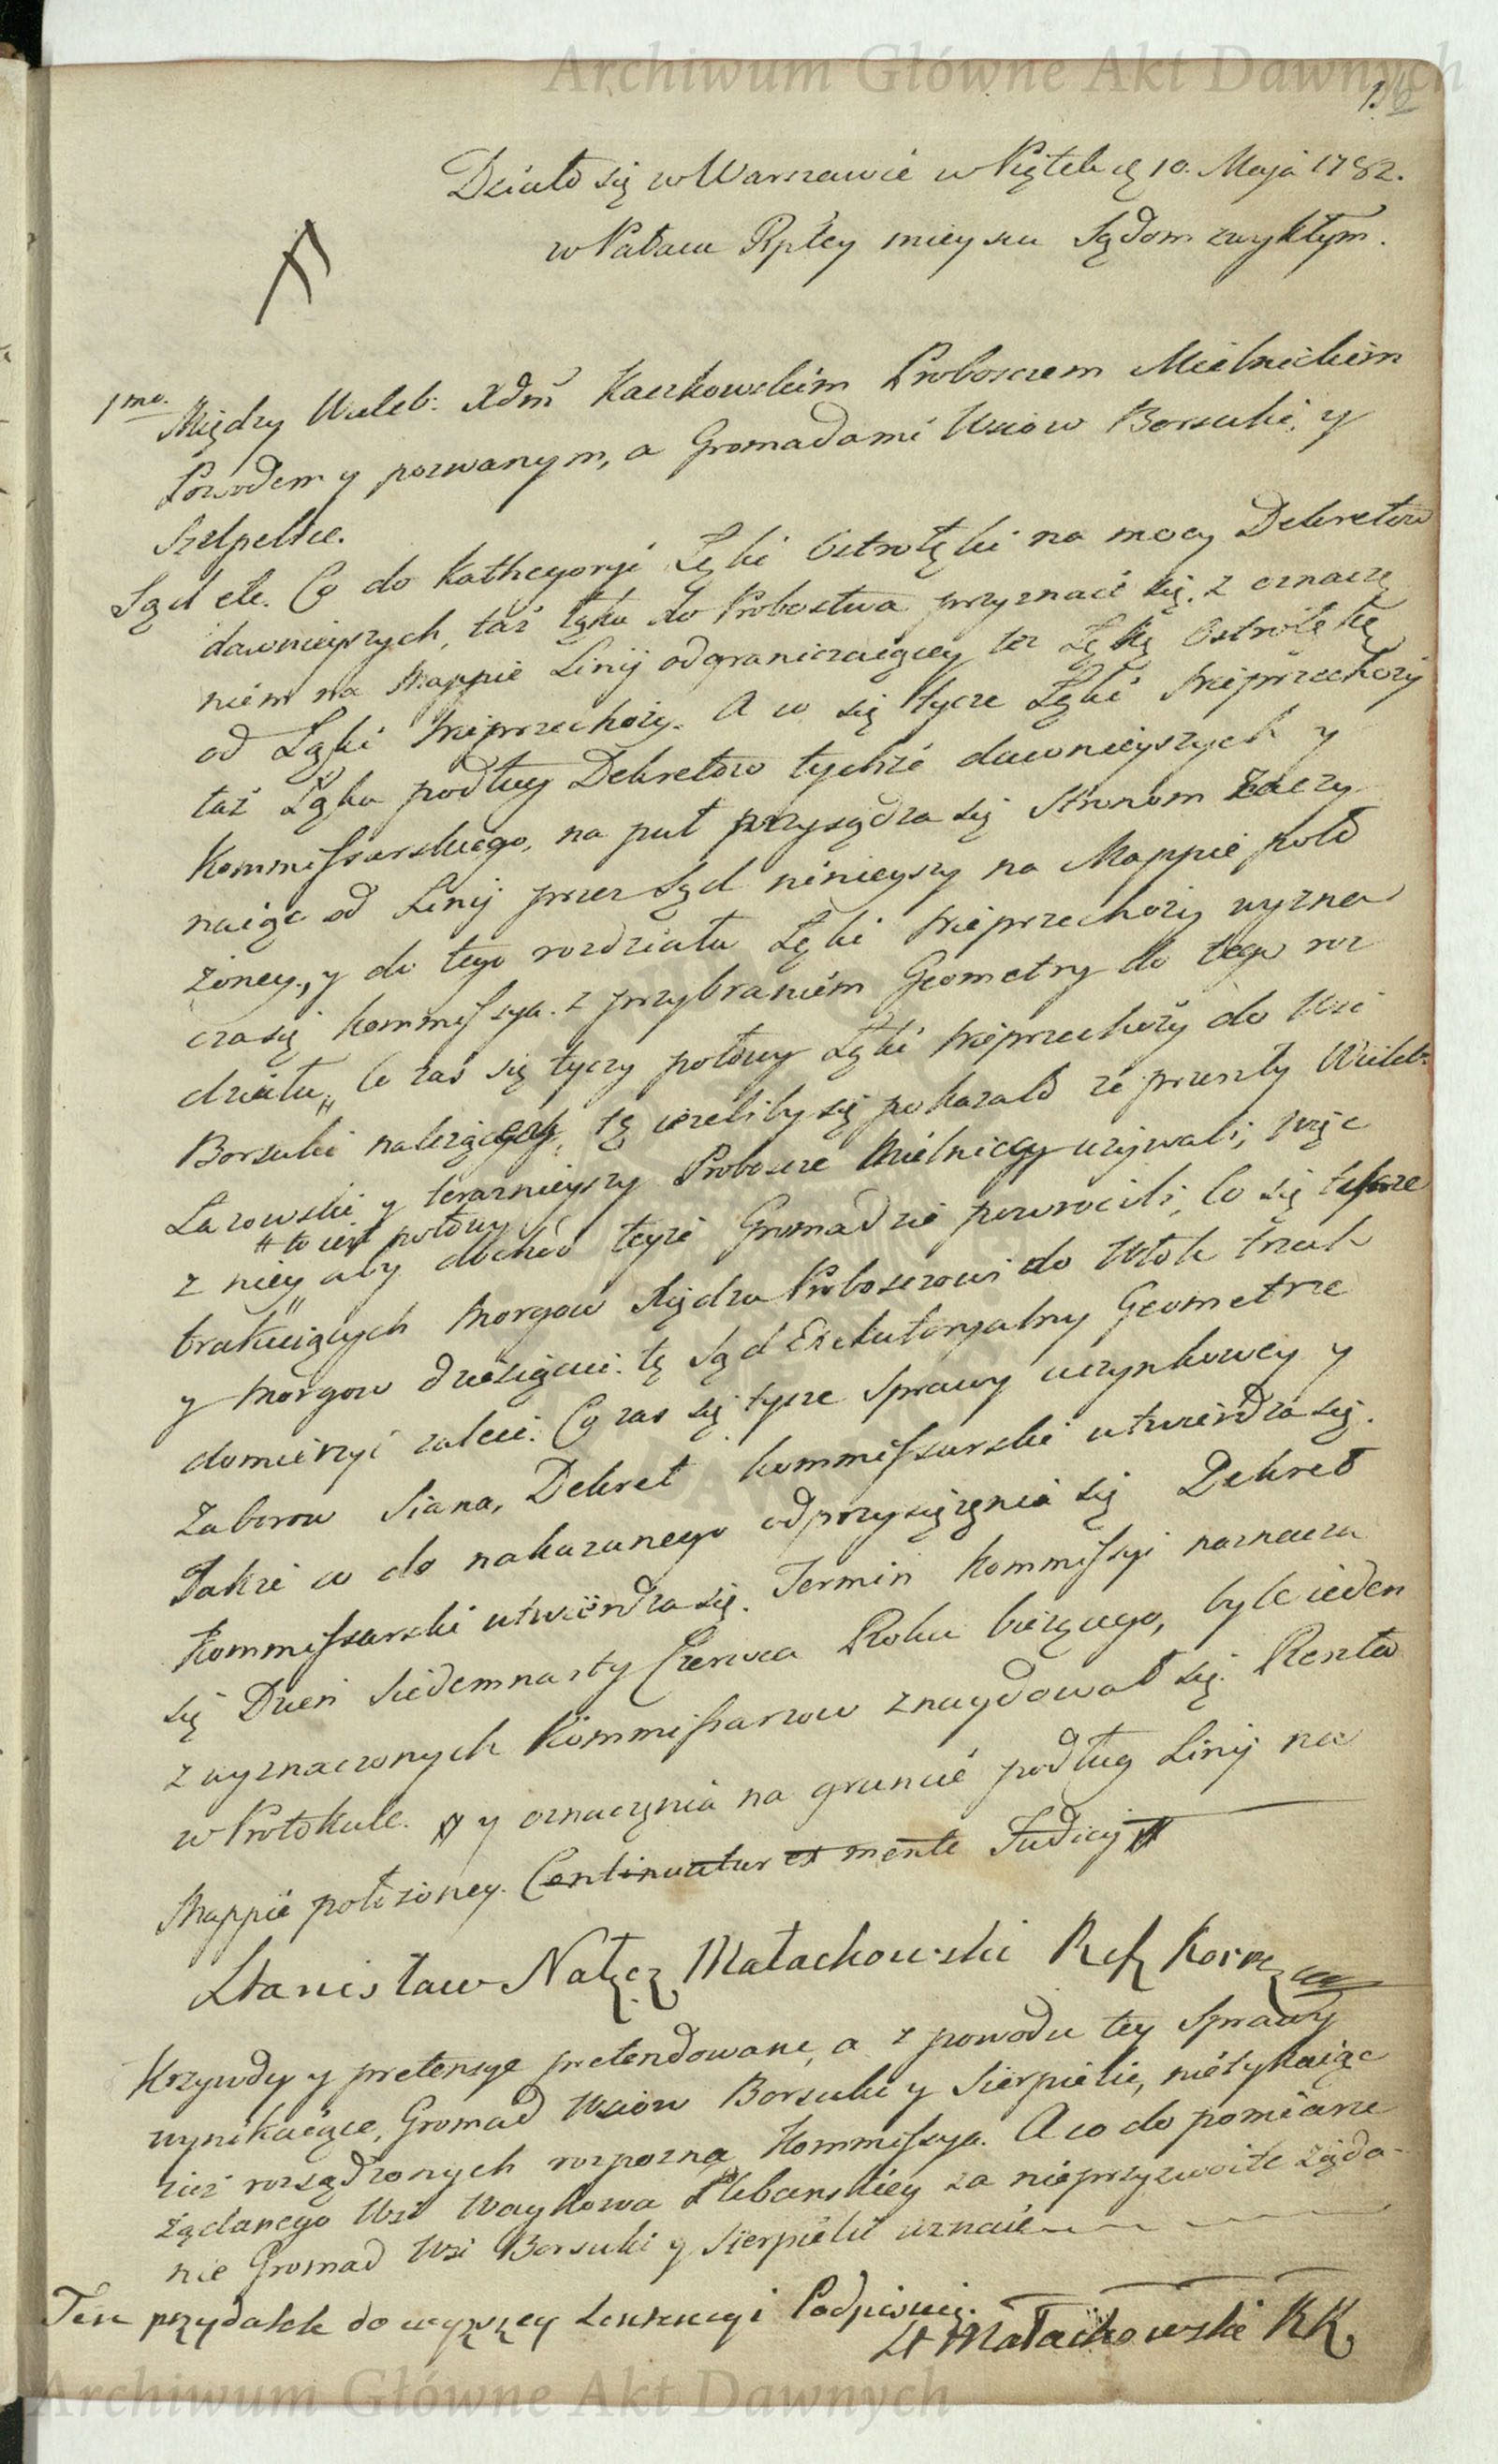 Archiwum Główne Akt Dawnych
Działo się w Warszawie w Piątek d. 10. Maja 1782.
w Pałacu Rpltey mieyscu Sądom zwykłym.
1mo. Między Wieleb: Xdzm Kaczkowskim Proboszczem Mielnickim
Powodem y pozwanym, a Gromadami Wsiow Borsuki, y
Sąd etc. Co do Kathegoryi Łąki Ostrołęki na mocy Dekretow
dawnieyszych, taż Łąka do Probostwa przyznaie się, z oznacze
niem na Mappie Linij odgraniczaiącey też Łąkę Ostrołękę
od Łąki Nieprzechoży. A co się tycze Łąki Nieprzechoży
taż Łąka podług Dekretow tychże dawnieyszych y
Kommissarskiego, na puł przysądza się Stronom zaczy
naiąc od Linij przez Sąd ninieyszy na Mappie poło
żoney, y do tego rozdziału Łąki Nieprzechoży wyzna
cza się Kommissya z przybraniem Geometry do tego roz
działu, Co zaś się tyczy połowy Łąki Nieprzechoży do Wsi
Borsuki należącey, tę ieżeliby się pokazało że przeszły Wieleb:
Łazowski y teraznieyszy Proboszcz Mielnicky używali, więc
# to iest połowy
z niey aby dochod teyże Gromadzie powrocili, Co się tycze
brakuiących Morgow Xiędzu Proboszczowi do Włok trzech
y Morgow dziesięciu. tę Sąd Exekutoryalny Geometrze
domierzyć zaleci. Co zas się tycze Sprawy uczynkowey y
Zaborow Siana, Dekret Kommissarski utwierdza się.
Takze co do nakazanego odprzysiężenia się Dekret
Kommissarski utwierdza się. Termin Kommissyi naznacza
się Dzień Siedemnasty Czerwca Roku bieżącego, byle ieden
z wyznaczonych Kommissarzow znaydował się. Reszta
w Protokule. y oznaczenia na gruncie podług Linij na
Mappie położoney. Continuatur ex mente Judicij
Stanisław Nałęcz Małachowski Ref Koronny
Krzywdy y pretensye pretendowane, a z powodu tey Sprawy
wynikaiące, Gromad Wsiow Borsuki y Sierpielie, nietykaiąc
iuż rozsądzonych rozpozna Kommissya. A co do pomiaru
żądanego Wsi Waykowa Plebanskiey za nieprzyzwoite żąda-
nie Gromad Wsi Borsuki y Sierpielie uznaie
Ten przydatek do wyższey Sentencyi Podpisuię.
St Małachowski RK
Archiwum Główne Akt Dawnych